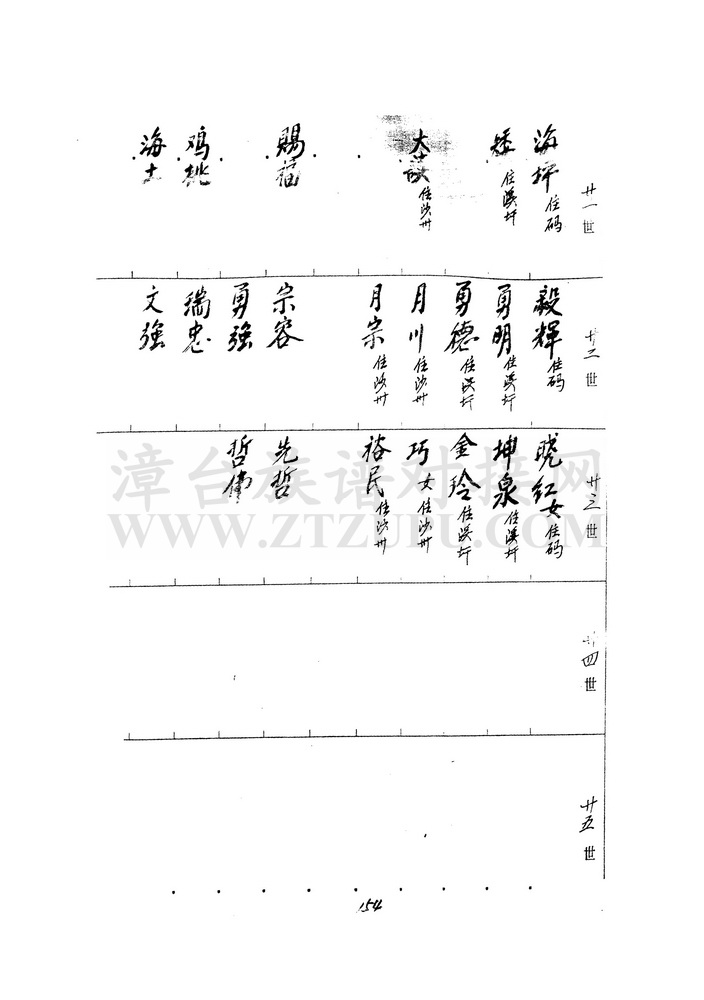 廿一世
海坪 住码
矮 住溪圩
大 住沙州
赐福
鸡桃
海土
廿二世
毅辉 住码
勇明 住溪圩
勇德 住溪圩
月川 住沙州
月宗 住沙州
宗容
勇强
瑞忠
文强
廿三世
晓红 女 住码
坤泉 住溪圩
金玲 住溪圩
巧 女 住沙州
裕民 住沙州
先哲
哲伟
廿四世
廿五世
154
漳台族谱对接网
WWW.ZTZUPU.COM